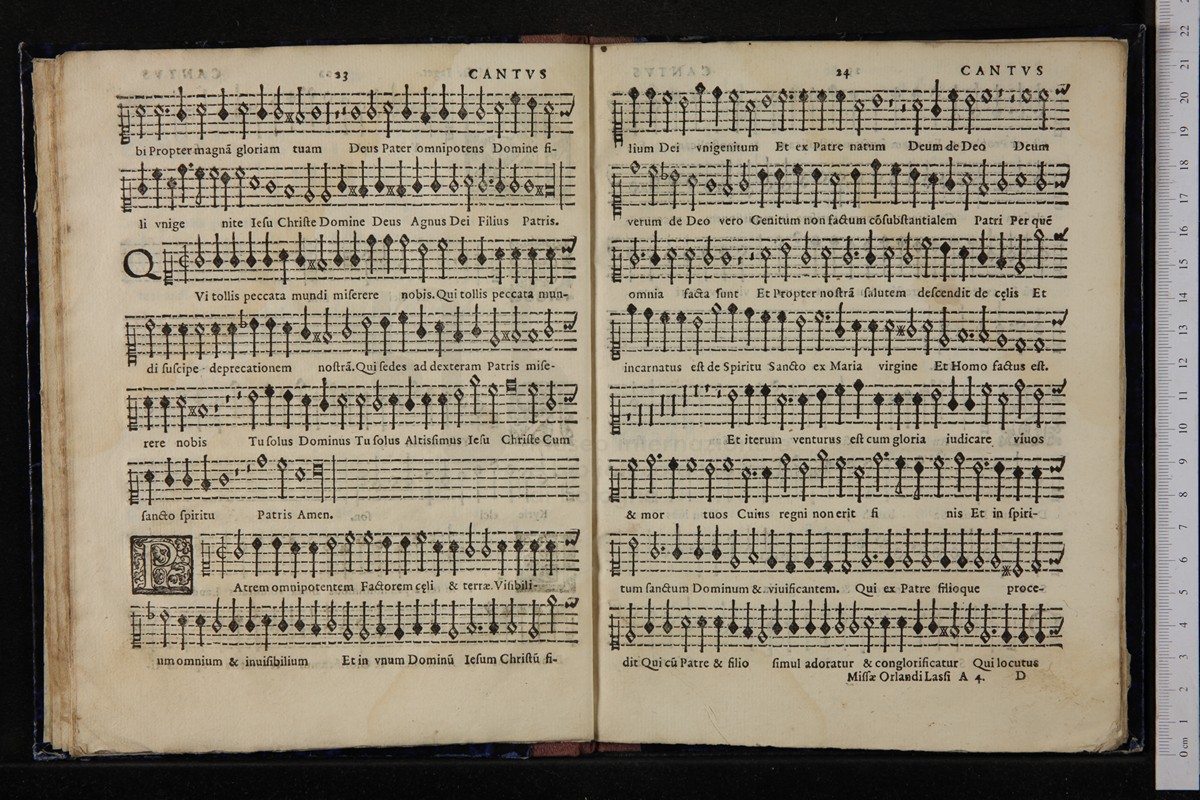 23 CANTVS
bi Propter magnã gloriam tuam Deus Pater omnipotens Domine fi-
li vnige nite Iesu Christe Domine Deus Agnus Dei Filius Patris.
Q
Vi tollis peccata mundi miserere nobis. Qui tollis peccata mun-
di suscipe deprecationem nostrã. Qui sedes ad dexteram Patris mise-
rere nobis Tu solus Dominus Tu solus Altissimus Iesu Christe Cum
sancto spiritu Patris Amen.
P
Atrem omnipotentem Factorem cęli & terræ. Visibili-
um omnium & inuisibilium Et in vnum Dominũ Iesum Christũ fi-
24 CANTVS
lium Dei vnigenitum Et ex Patre natum Deum de Deo Deum
verum de Deo vero Genitum non factum cõsubstantialem Patri Per quẽ
omnia facta sunt Et Propter nostrã salutem descendit de cęlis Et
incarnatus est de Spiritu Sancto ex Maria virgine Et Homo factus est.
Et iterum venturus est cum gloria iudicare viuos
& mor tuos Cuius regni non erit fi nis Et in spiri-
tum sanctum Dominum & viuificantem. Qui ex Patre filioque proce-
dit Qui cũ Patre & filio simul adoratur & conglorificatur Qui locutus
Missæ Orlandi Lassi A 4. D
0 cm 1 2 3 4 5 6 7 8 9 10 11 12 13 14 15 16 17 18 19 20 21 22